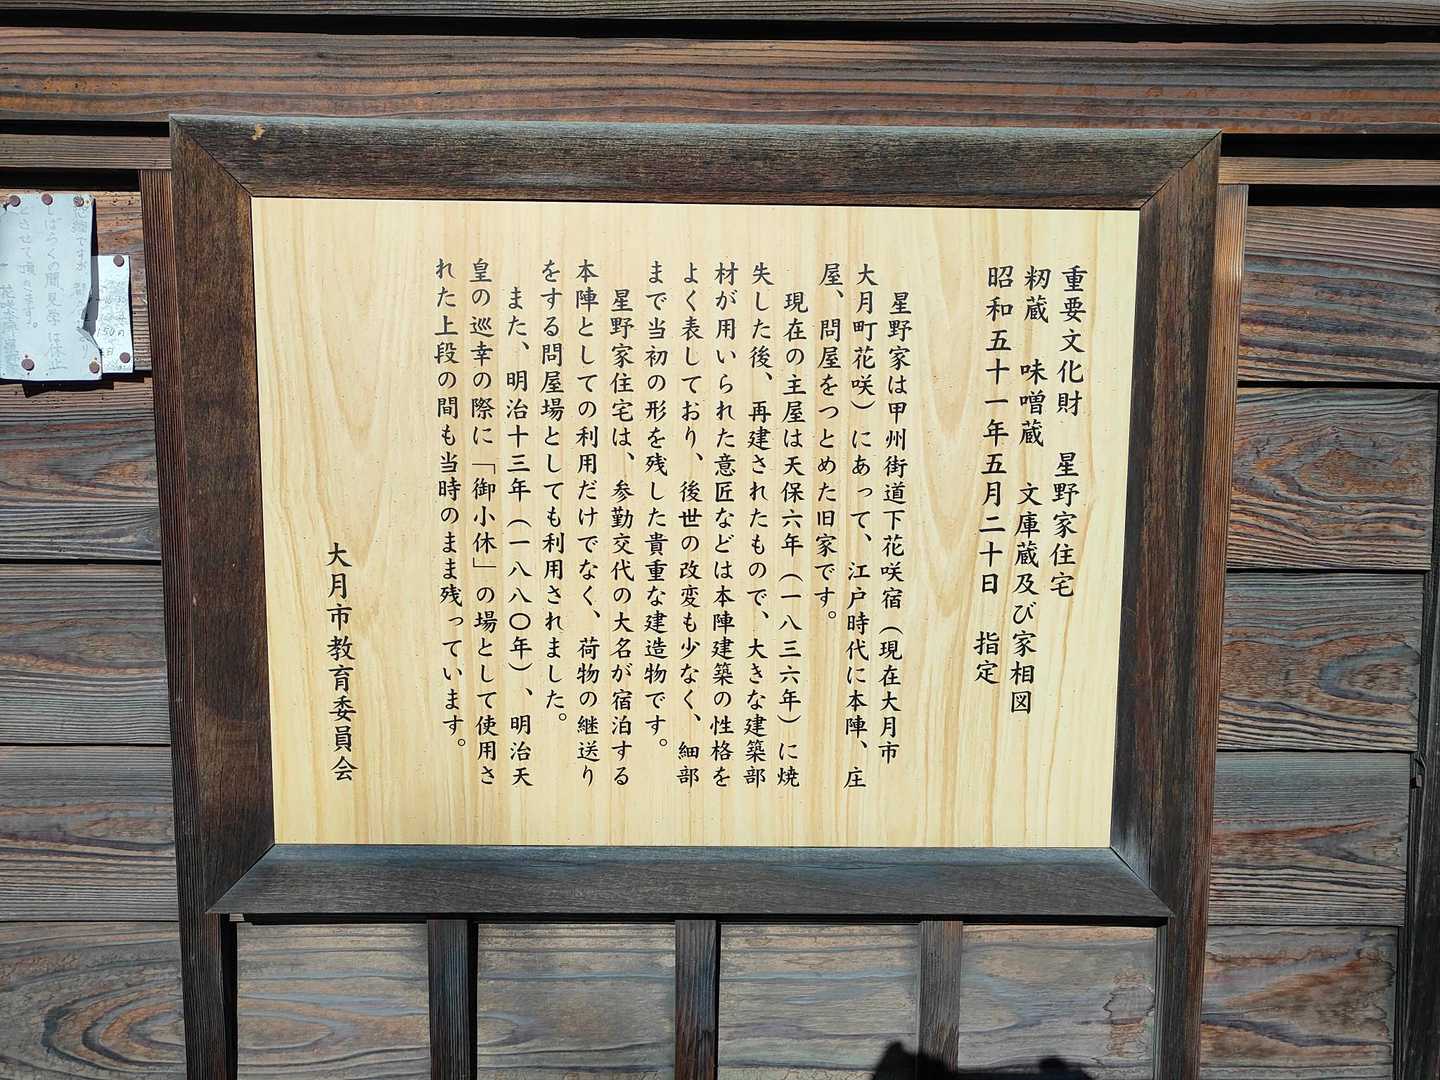 重要文化財　星野家住宅
籾蔵　味噌蔵　文庫蔵及び家相図
昭和五十一年五月二十日　指定
星野家は甲州街道下花咲宿（現在大月市
大月町花咲）にあって、江戸時代に本陣、庄
屋、問屋をつとめた旧家です。
現在の主屋は天保六年（一八三六年）に焼
失した後、再建されたもので、大きな建築部
材が用いられた意匠などは本陣建築の性格を
よく表しており、後世の改変も少なく、細部
まで当初の形を残した貴重な建造物です。
星野家住宅は、参勤交代の大名が宿泊する
本陣としての利用だけでなく、荷物の継送り
をする問屋場としても利用されました。
また、明治十三年（一八八〇年）、明治天
皇の巡幸の際に「御小休」の場として使用さ
れた上段の間も当時のまま残っています。
大月市教育委員会
しばらくの間見学は休止
とさせて頂きます。